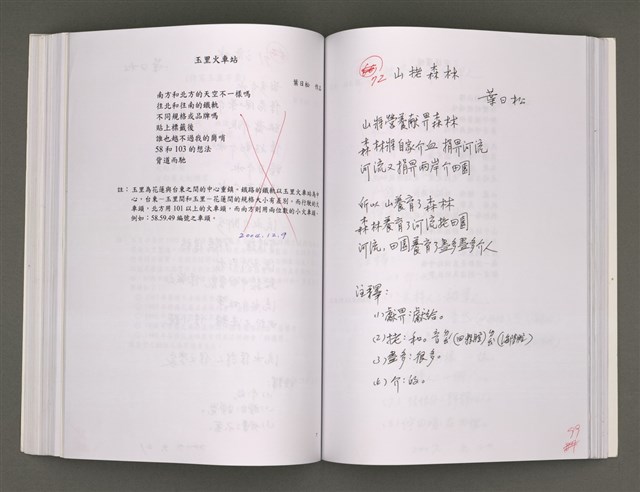 玉里火車站
葉日松 作品
南方和北方的天空不一樣嗎
往北和往南的鐵軌
不同規格或品牌嗎
貼上標籤後
誰也越不過我的肩哨
58 和 103 的想法
背道而馳
註：玉里為花蓮與台東之間的中心重鎮。鐵路的鐵軌以玉里火車站為中
心。台東－玉里間和玉里－花蓮間的規格大小有差別。而行駛的火
車頭，北方用101以上的火車頭。而南方則用兩位數的小火車頭。
例如：58.59.49 編號之車頭。
72
山搓森林
葉日松
山將營養獻畀森林
森林將自家介血 捐畀河流
河流又捐畀兩岸个田園
所以 山養育了森林
森林養育了河流搓田園
河流、田園養育了盡多盡多个人
注釋：
(1)獻畀：獻給。
(3)盡多：很多。
(4)个：的。
99